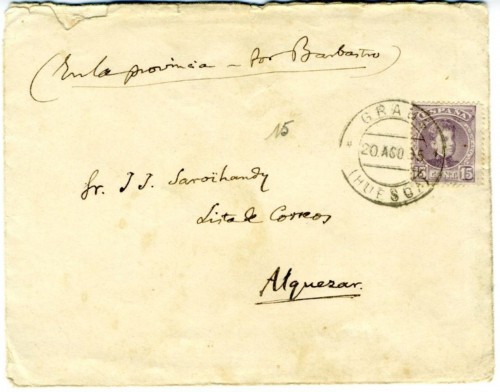 (En la provincia – por Barbastro)
15
ESPAÑA
15 CENT 15
20 AGO
(HUESCA)
Sr. J J. Saroïhandy
Lista de Correos
Alquezar.